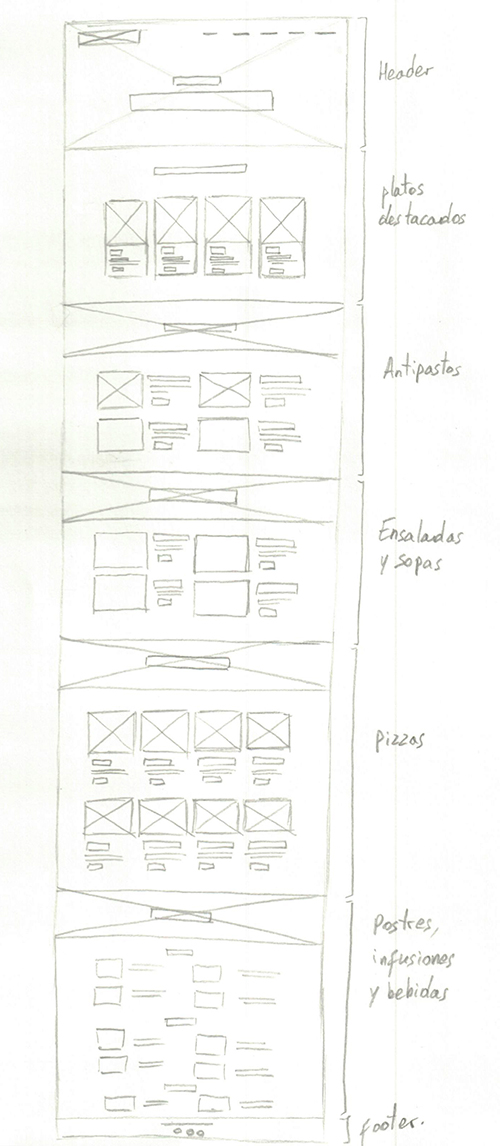 Header
platos
destacados
Antipastos
Ensaladas
y sopas
pizzas
Postres,
infusiones
y bebidas
footer.